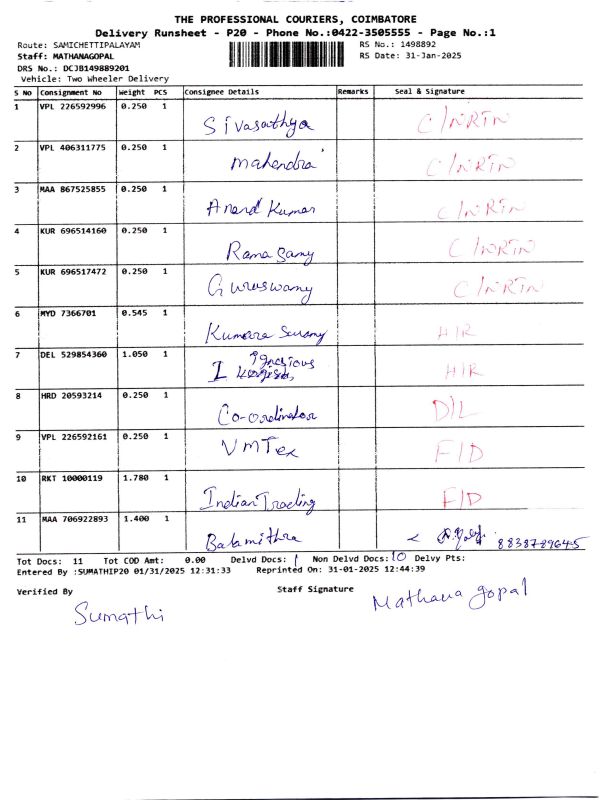 THE PROFESSIONAL COURIERS, COIMBATORE
Delivery Runsheet - P20 - Phone No.:0422-3505555 - Page No.:1
Route: SAMICHETTIPALAYAM RS No.: 1498892
Staff: MATHANAGOPAL RS Date: 31-Jan-2025
DRS No.: DCJB149889201
Vehicle: Two Wheeler Delivery
S No Consignment No Weight PCS Consignee Details Remarks Seal & Signature
1 VPL 226592996 0.250 1 Sivasathya C/NRTN
2 VPL 406311775 0.250 1 Mahendra C/NRTN
3 MAA 867525855 0.250 1 Anand Kumar C/NRTN
4 KUR 696514160 0.250 1 Rama Samy C/NRTN
5 KUR 696517472 0.250 1 Guruswamy C/NRTN
6 MYD 7366701 0.545 1 Kumara Swamy H/R
7 DEL 529854360 1.050 1 I Ignasious H/R
8 HRD 20593214 0.250 1 Co-ordinator D/L
9 VPL 226592161 0.250 1 VMTex F/D
10 RKT 10000119 1.780 1 Indian Trading F/D
11 MAA 706922893 1.400 1 Balamithra 8838789645
Tot Docs: 11 Tot COD Amt: 0.00 Delvd Docs: 1 Non Delvd Docs: 10 Delvy Pts:
Entered By :SUMATHIP20 01/31/2025 12:31:33 Reprinted On: 31-01-2025 12:44:39
Verified By Staff Signature
Sumathi Mathana gopal